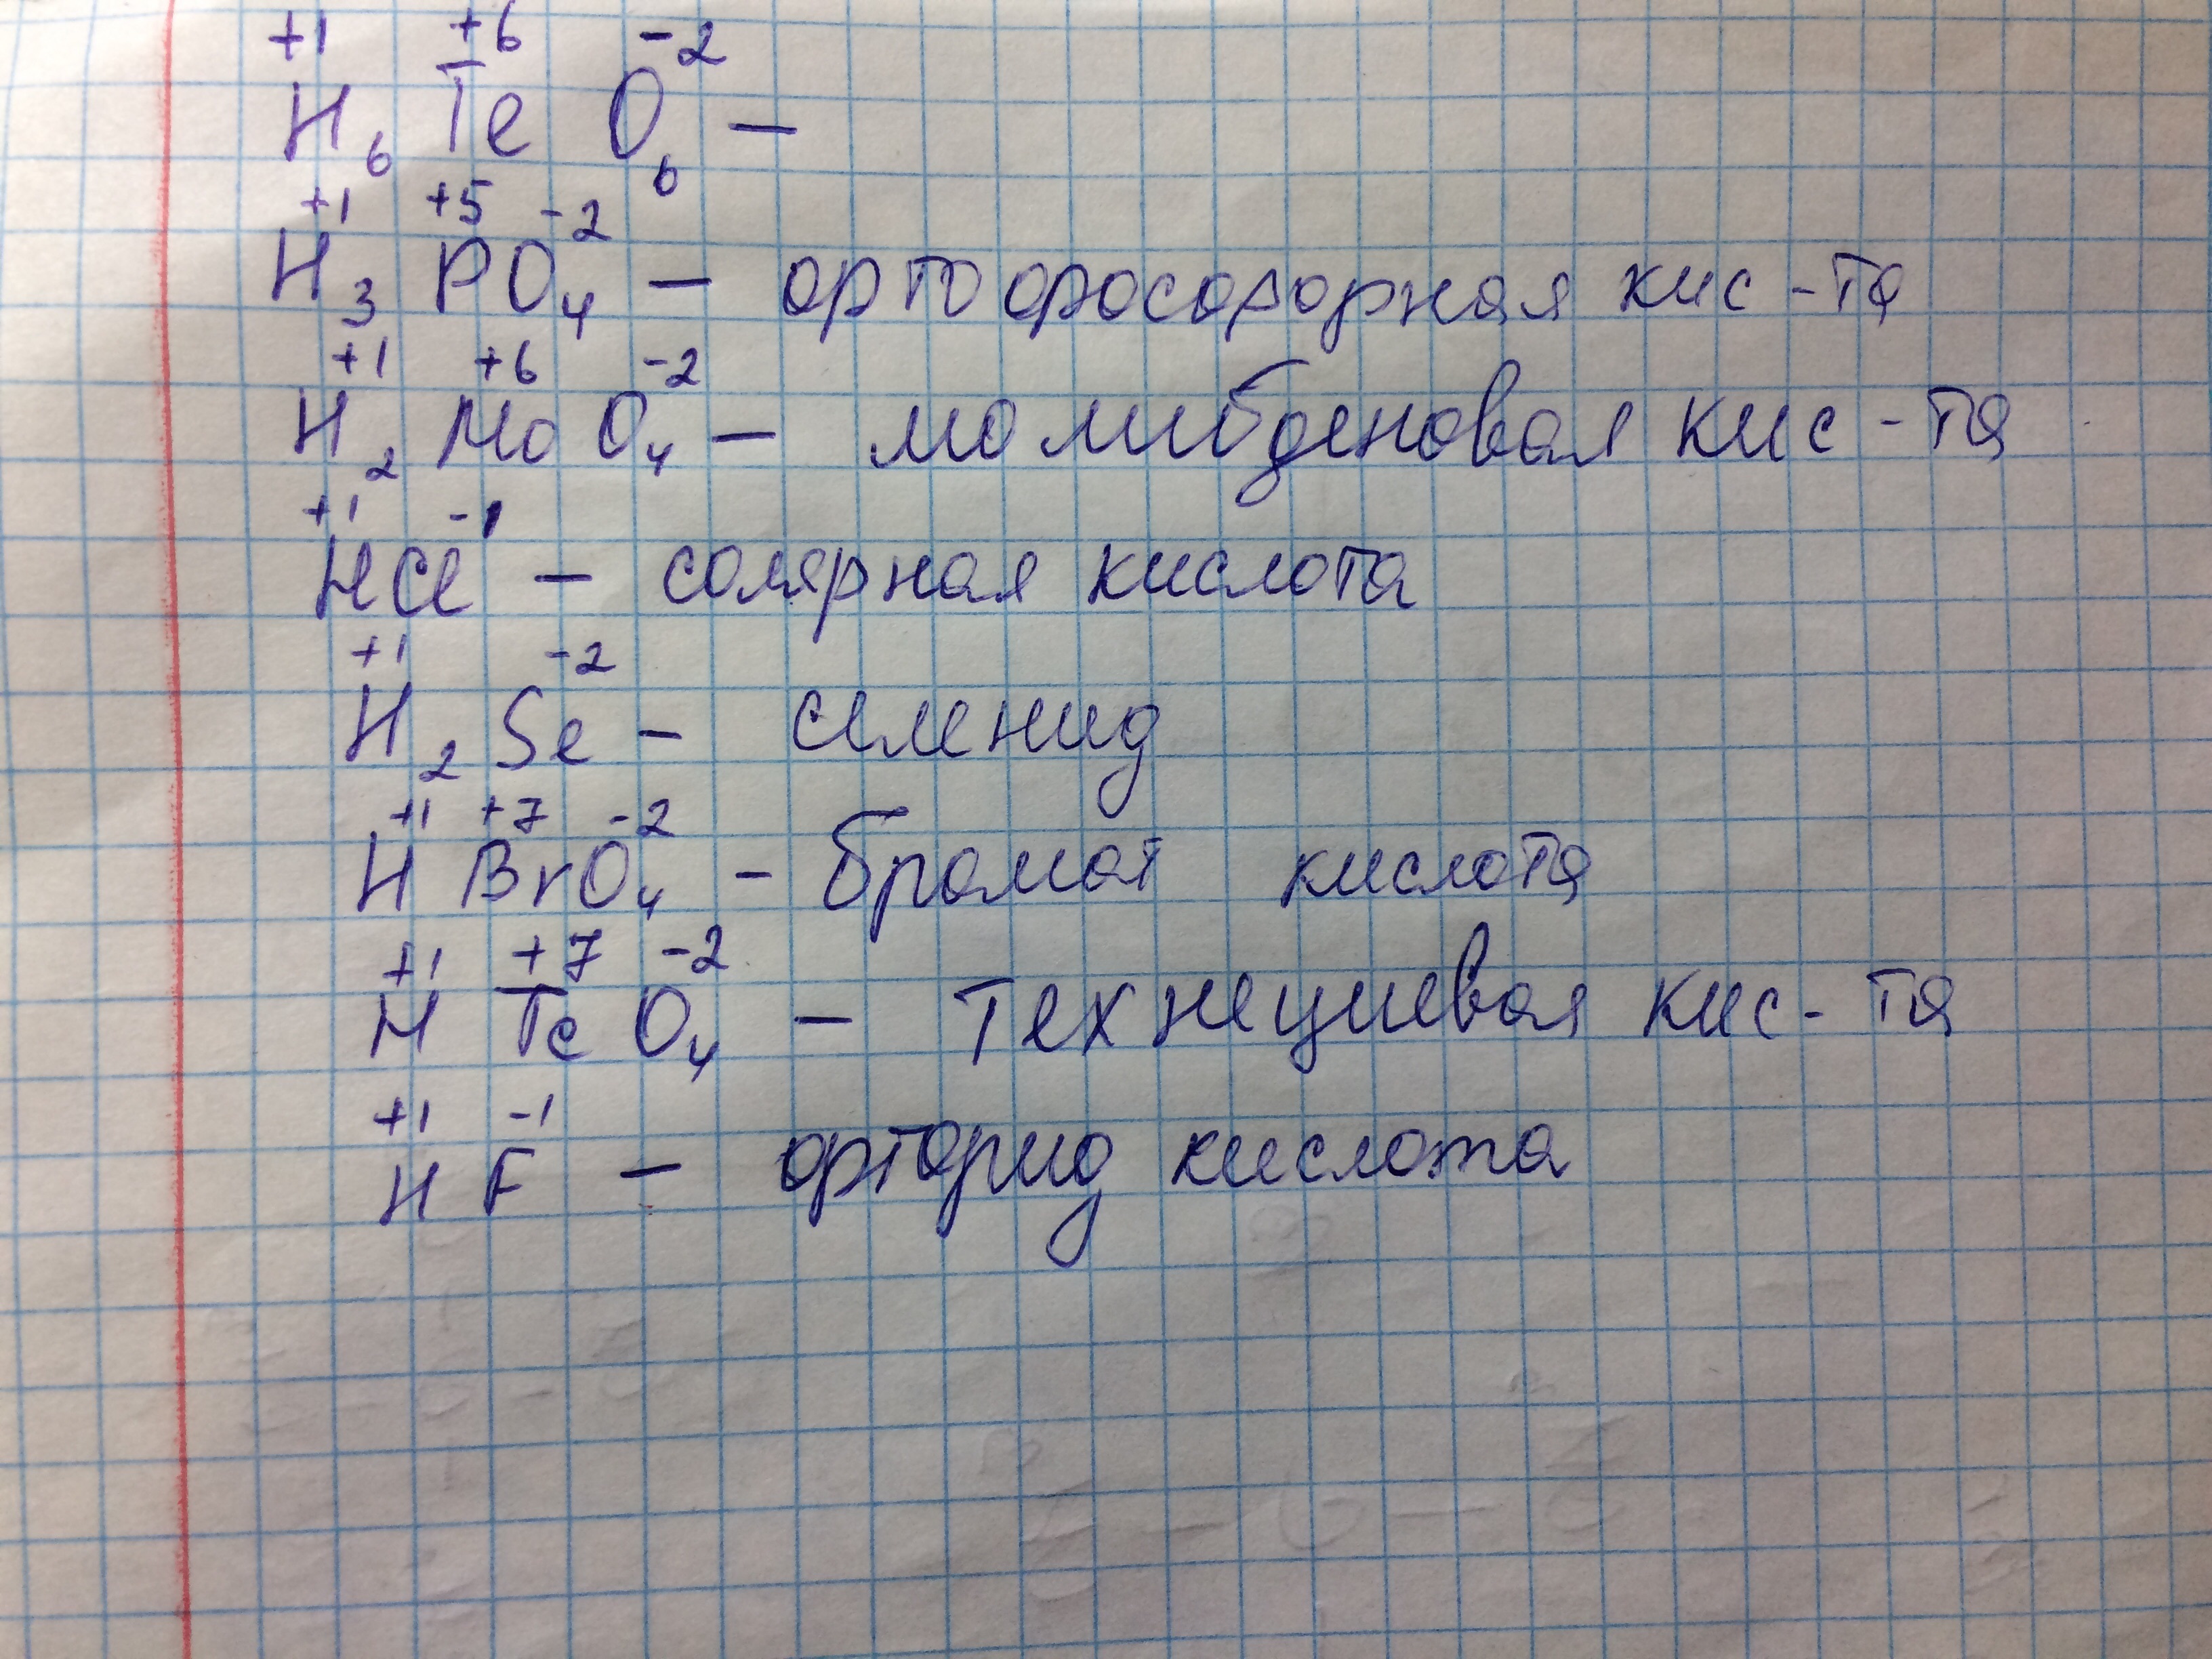 +1 +6 -2
H₆ Te O₆ —
+1 +5 -2
H₃ PO₄ — ортофосфорная кис-та
+1 +6 -2
H₂ Mo O₄ — молибденовая кис-та
+1 -1
HCl — солярная кислота
+1 -2
H₂ Se — селенид
+1 +7 -2
H BrO₄ — бромат кислота
+1 +7 -2
H Tc O₄ — технециевая кис-та
+1 -1
H F — фторид кислота